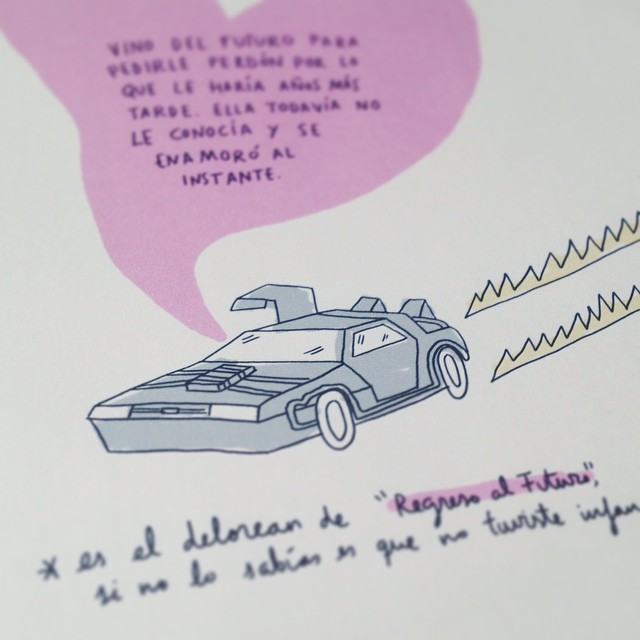 VINO DEL FUTURO PARA
PEDIRLE PERDÓN POR LO
QUE LE HARÍA AÑOS MÁS
TARDE. ELLA TODAVÍA NO
LE CONOCÍA Y SE
ENAMORÓ AL
INSTANTE.
* es el delorean de "Regreso al Futuro",
si no lo sabías es que no tuviste infan